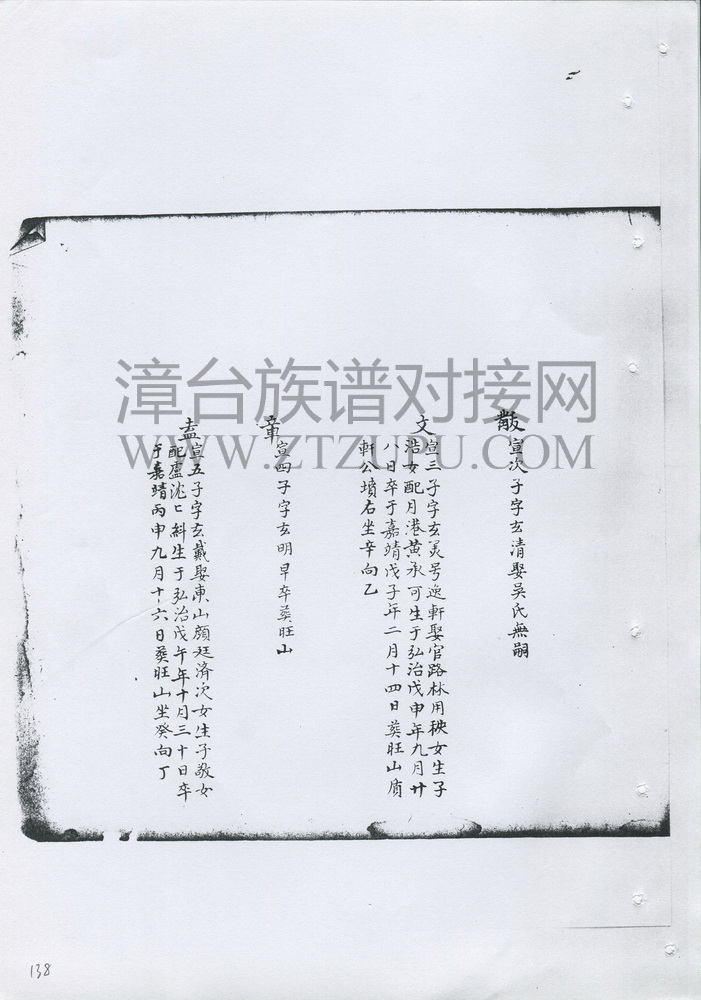 散 宣次子字玄清娶吳氏無嗣
文 宣三子字玄灵号逸軒娶官路林用秧女生子
浩女配月港黄承可生于弘治戊申年九月廿
八日卒于嘉靖戊子年二月十四日葬旺山质
軒公墳右坐辛向乙
章 宣四子字玄明早卒葬旺山
盍 宣五子字玄戴娶東山顔廷済次女生子敬女
配盧沈匕斜生于弘治戊午年十月三十日卒
于嘉靖丙申九月十六日葬旺山坐癸向丁
漳台族谱对接网
WWW.ZTZUPU.COM
138